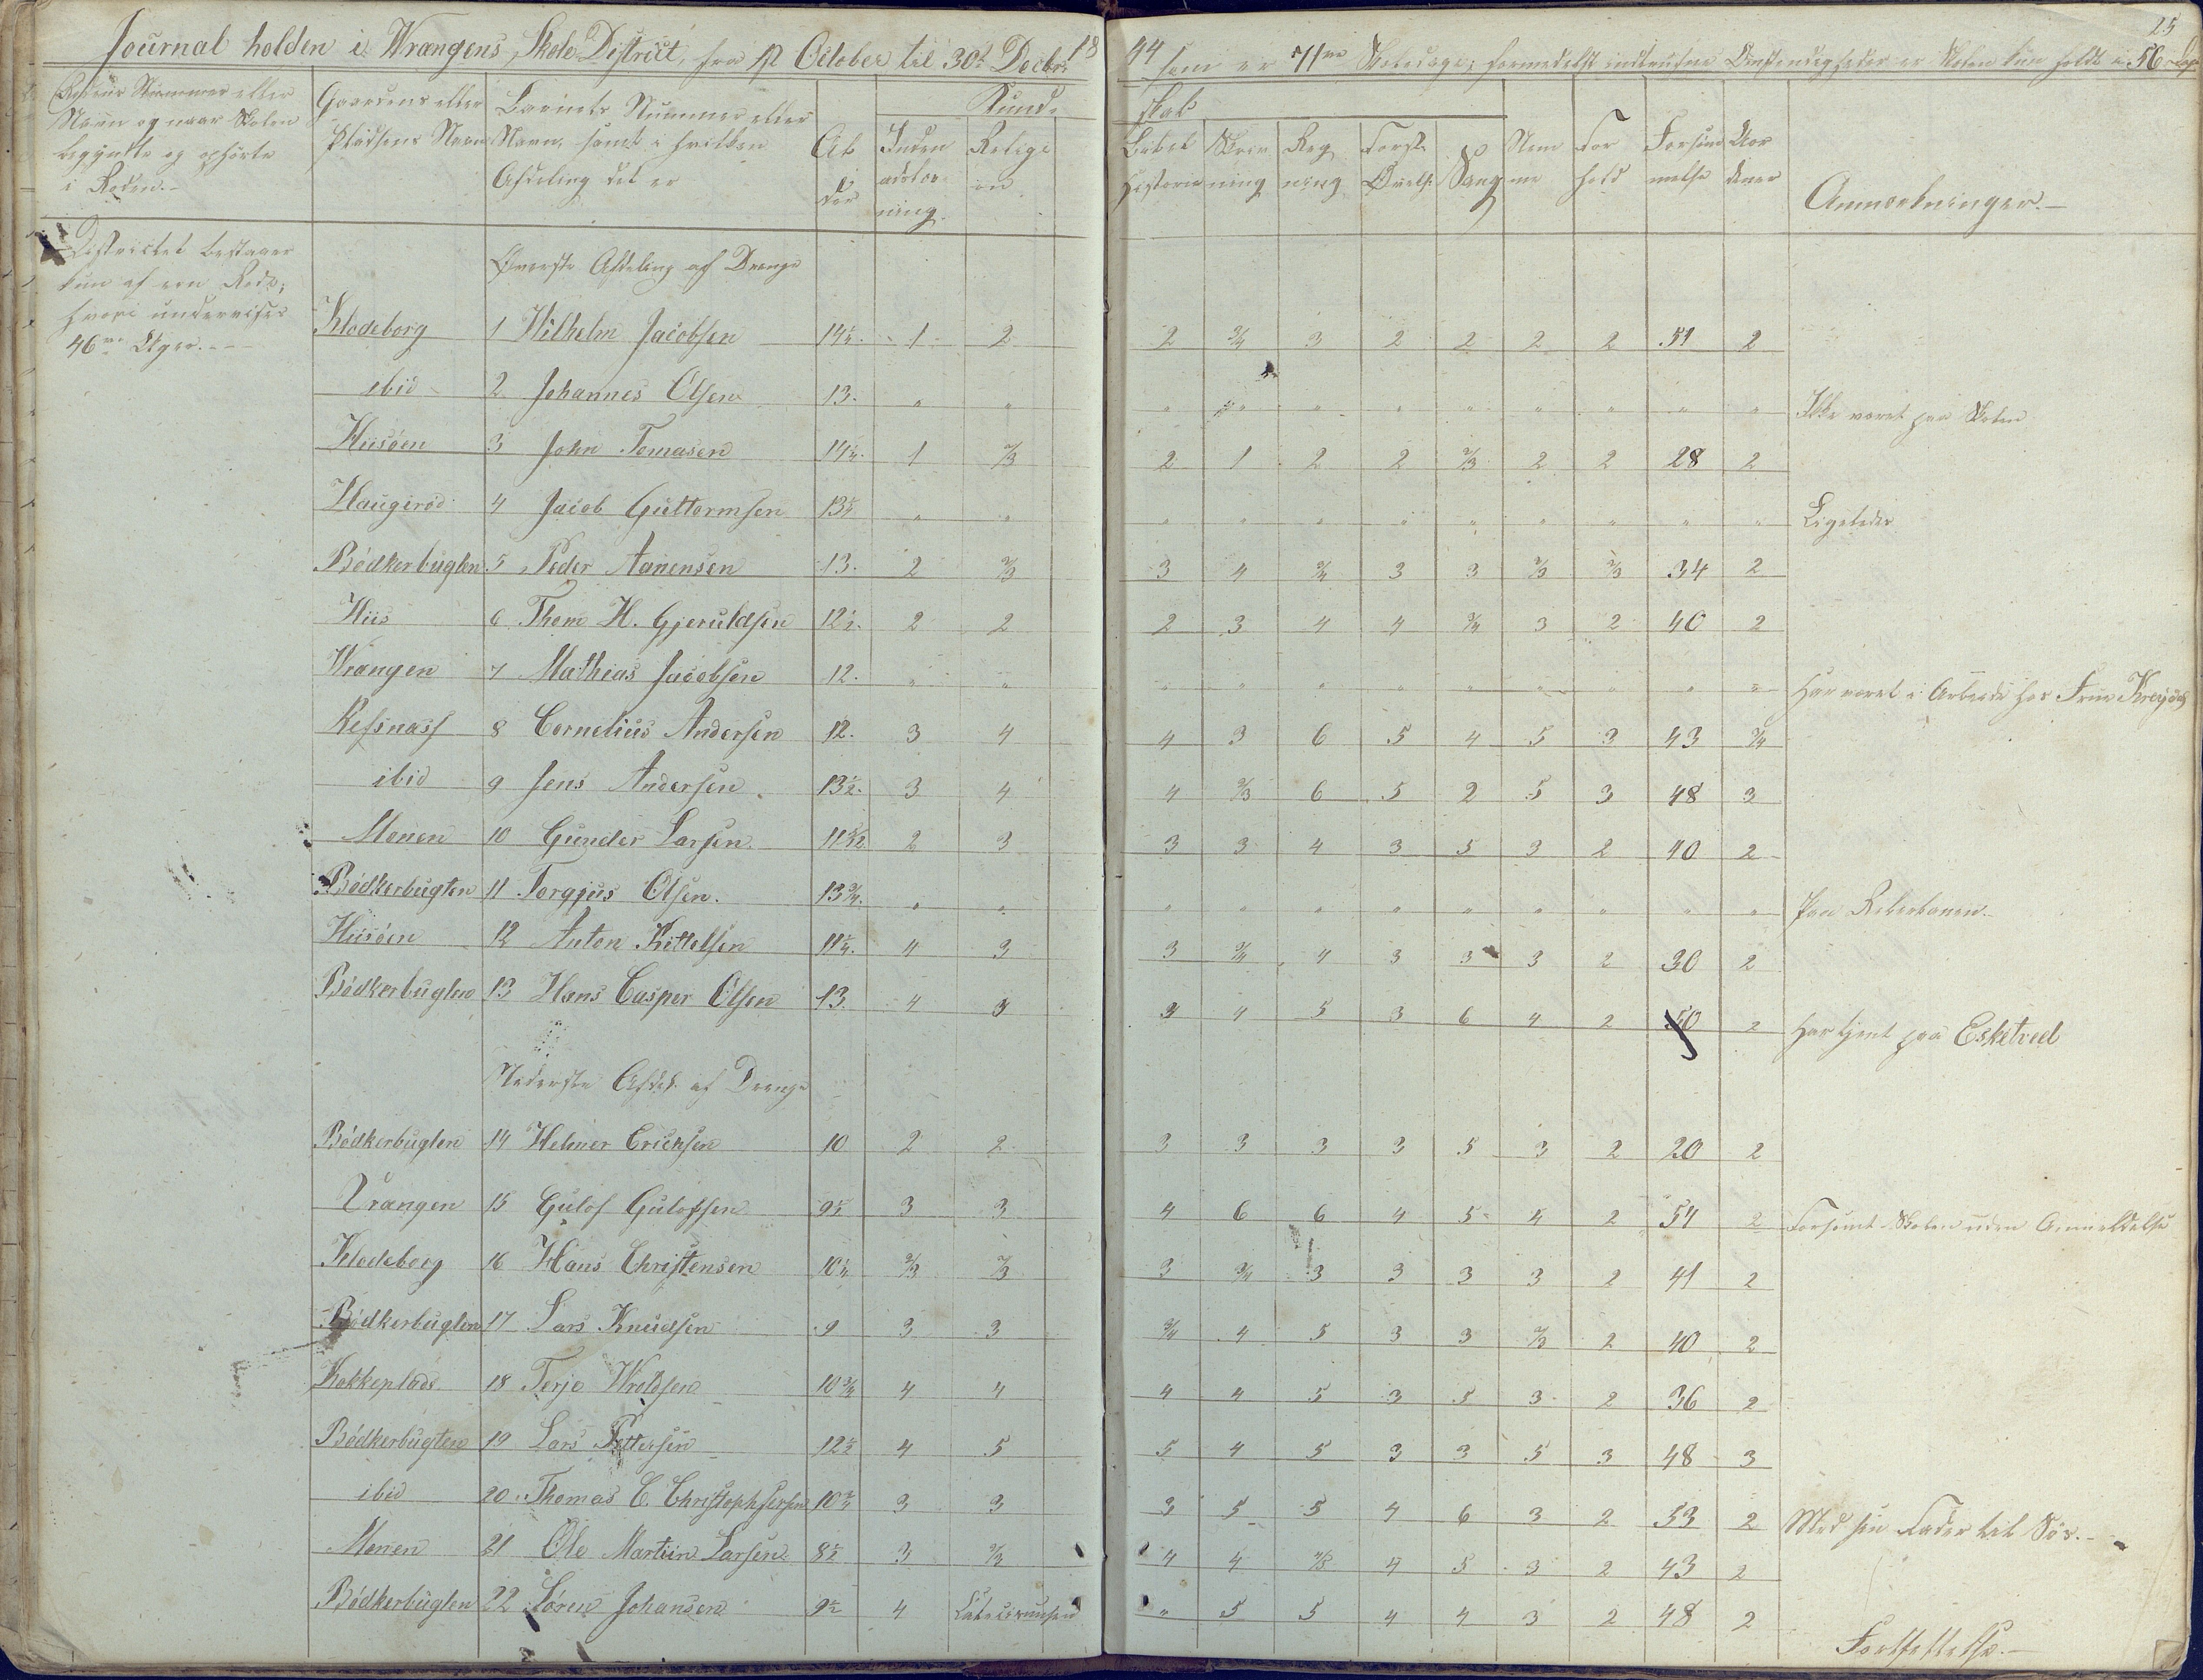 25
Journal holden i Wrangens Skole-District, fra 1st October til 30te Decbr 1844 som er 71ve Skoledage; formedelst indtrufne Omstendigheder er Skolen kun holdt i 56 Dage
Rodens Nummer eller Navn og naar Skolen begyndte og ophørte i Roden.-
Gaardens eller Pladsens Navn
Barnets Nummer eller Navn, samt i hvilken Afdeling det er
Alder
Kundskab
Inden adslæsning
Religion
Bibelhistorie
Skrivning
Regning
Forst. Øvelse
Sang
Nemme
Forhold
Forsømmelse
Anmærkninger.-
Districtet bestaaer
kun af een Rode,
hvori undervises
46 Uger.--
Øverste Afdeling af Drenge
Klodeborg 1 Wilhelm Jacobsen 14¼ 1 2 2 3/4 3 2 2 2 2 51 2
ibid 2 Johannes Olsen 13. " " " " " " " " " " " Ikke været paa Skolen
Hiisöen 3 John Tomasen 14¼ 1 2/3 2 1 2 2 2/3 2 2 28 2
Haugeröd 4 Jacob Guttormsen 13½ " " " " " " " " " " " Ligeledes
Bödkerbugten 5 Peder Aanensen 13. 2 2/3 3 4 3/4 3 3 2/3 2/3 34 2
Hiis 6 Thom H. Gjeruldsen 12½ 2 2 2 3 4 4 3/4 3 2 40 2
Wrangen 7 Mathias Jacobsen 12. " " " " " " " " " " " Har været i Arbeide hos Frue
Refsnæss 8 Cornelius Andersen 12. 3 4 4 3 6 5 4 5 3 43 3/4
ibid 9 Jens Andersen 13½ 3 4 4 2/3 6 5 2 5 3 48 3
Monen 10 Gunder Larsen 2 3 3 3 4 3 5 3 2 40 2
Bödkerbugten 11 Torgjus Olsen. 13¾ " " " " " " " " " " " Paa Reberbanen.-
Hiisöen 12 Anton Kittelsen 11¼ 4 3 3 3/4 4 3 3 3 2 30 2
Bödkerbugten 13 Hans Casper Olsen 13. 4 3 3 4 5 3 6 4 2 50 2 Har tjent paa Esketved
Nederste Afdel. af Drenge
Bödkerbugten 14 Helmer Ericksen 10 2 2 3 3 3 3 5 3 2 20 2
Vrangen 15 Gulof Gulofsen 9½ 3 3 4 6 6 4 5 4 2 54 2 Forsømt Skolen uden Anmeldelse
Klodeborg 16 Hans Christensen 10¼ 2/3 2/3 3 3/4 3 3 3 3 2 41 2
Bödkerbugten 17 Lars Knudsen 9 3 3 3/4 4 5 3 3 2/3 2 40 2
Kokkeplads 18 Terje Wroldsen 10¾ 4 4 4 4 5 3 5 3 2 36 2
Bödkerbugten 19 Lars Pettersen 12½ 4 5 5 4 5 3 3 5 3 48 3
ibid 20 Thomas C. Christophersen 3 3 3 5 5 4 6 3 2 53 2 Med sin Fader til Søs.-
Monen 21 Ole Martin Larsen 8½ 3 2/3 4 4 4/5 4 5 3 2 43 2
Bödkerbugten 22 Sören Johansen 9½ 4 " 5 5 4 4 3 2 48 2
Fortsættelse.-